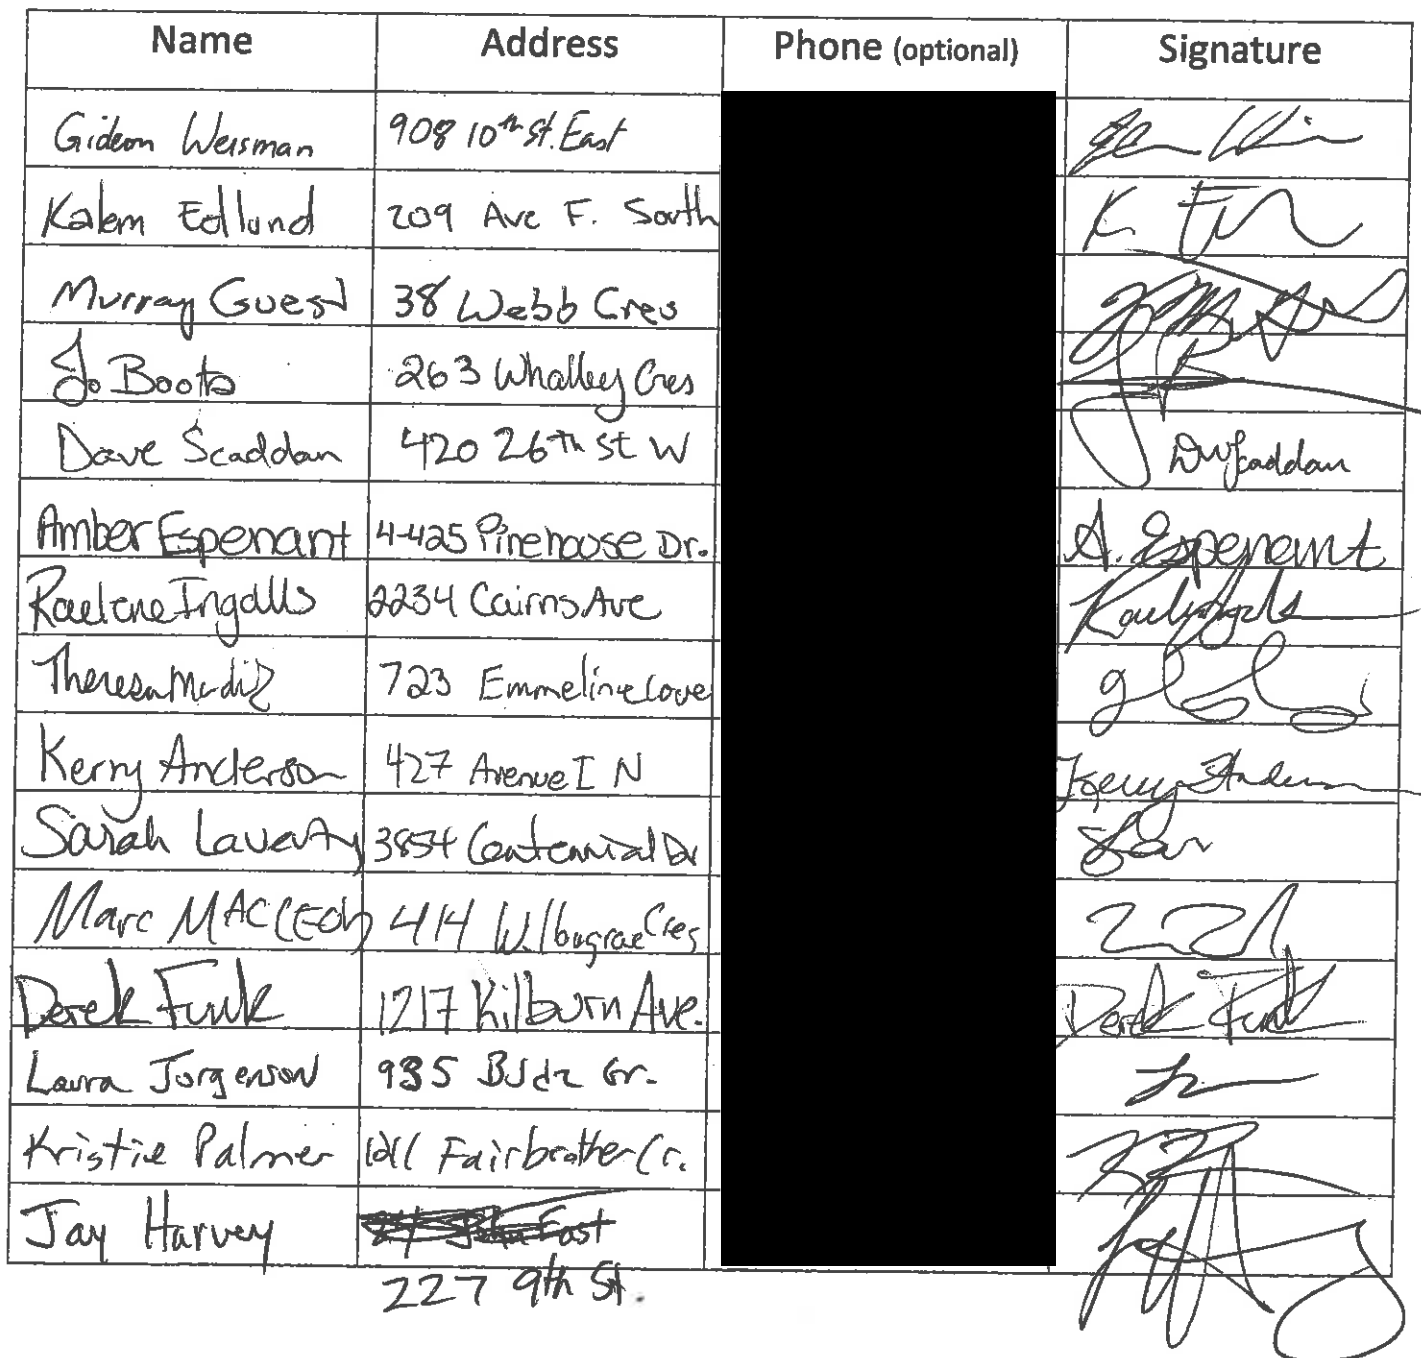 Name Address Phone (optional) Signature
Gideon Weisman 908 10th St. East
Kalem Edlund 209 Ave F. South K
Murray Guest 38 Webb Cres
Jo Boots 263 Whalley Cres
Dave Scaddan 420 26th St W DWScaddan
Amber Espenant 4-425 Pinehouse Dr. A. Espenant
Raelene Ingalls 2234 Cairns Ave
Theresa 723 Emmeline Cove
Kerry Anderson 427 Avenue I N Kerry Anderson
Sarah Laverty 3854 Centennial Dr
Marc MACLEOD 414 Cres
Derek Funk 1217 Kilburn Ave. Derek Funk
Laura Jorgenson 935 Cr.
Kristie Palmer Fairbrother Cr.
Jay Harvey East
227 9th St.